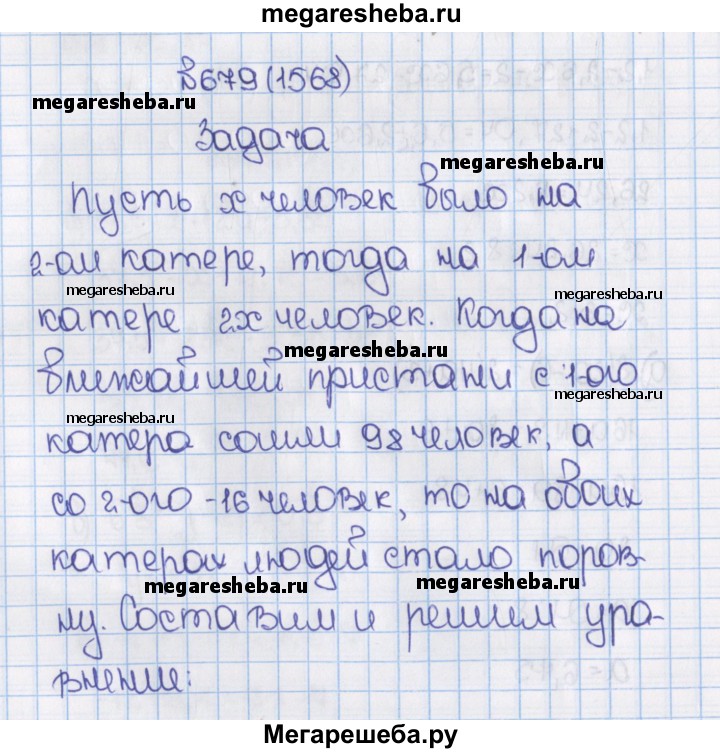 megaresheba.ru
№679 (1568)
megaresheba.ru
Задача
megaresheba.ru
Пусть x человек было на
2-ом катере, тогда на 1-ом
megaresheba.ru
megaresheba.ru
катере 2x человек. Когда на
megaresheba.ru
ближайшей пристани с 1-ого
megaresheba.ru
megaresheba.ru
катера сошли 98 человек, а
со 2-ого - 16 человек, то на обоих
катерах людей стало поров-
megaresheba.ru
megaresheba.ru
ну. Составим и решим ура-
внение:
Мегарешеба.ру